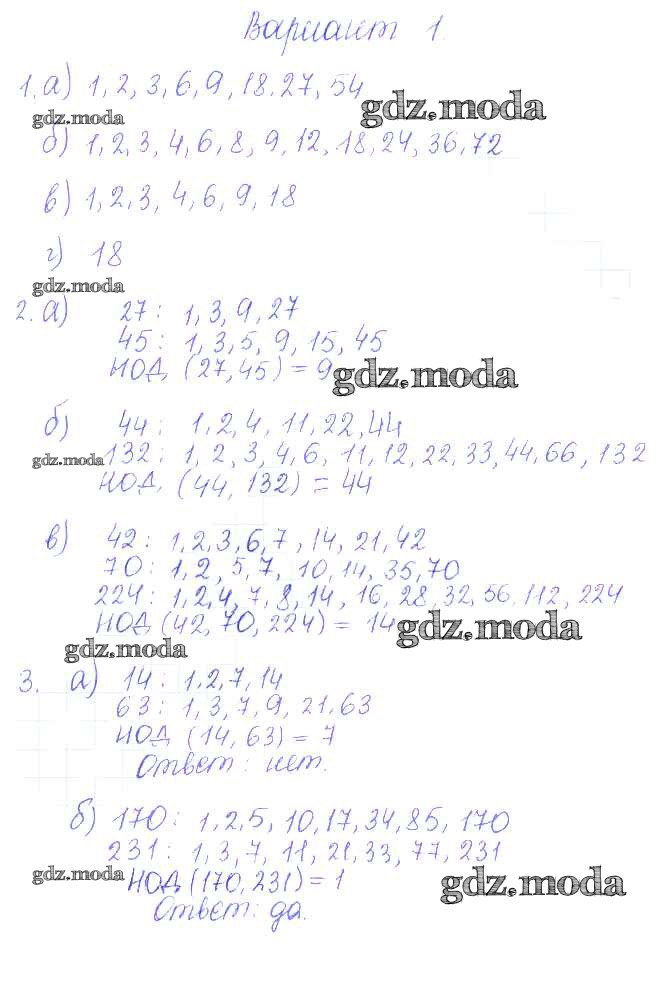 Вариант 1.
1. а) 1, 2, 3, 6, 9, 18. 27, 54
gdz.moda
gdz.moda
б) 1, 2, 3, 4, 6, 8, 9, 12, 18, 24, 36, 72
в) 1, 2, 3, 4, 6, 9, 18
г) 18
gdz.moda
2. а) 27: 1, 3, 9, 27
45: 1, 3, 5, 9, 15, 45
НОД (27, 45) = 9
gdz.moda
б) 44: 1, 2, 4, 11, 22, 44
gdz.moda
132: 1, 2, 3, 4, 6, 11, 12, 22, 33, 44, 66, 132
НОД (44, 132) = 44
в) 42: 1, 2, 3, 6, 7, 14, 21, 42
70: 1, 2, 5, 7, 10, 14, 35, 70
224: 1, 2, 4, 7, 8, 14, 16, 28, 32, 56, 112, 224
НОД (42, 70, 224) = 14
gdz.moda
gdz.moda
3. а) 14: 1, 2, 7, 14
63: 1, 3, 7, 9, 21, 63
НОД (14, 63) = 7
Ответ: нет.
б) 170: 1, 2, 5, 10, 17, 34, 85, 170
231: 1, 3, 7, 11, 21, 33, 77, 231
gdz.moda
НОД (170, 231) = 1
gdz.moda
Ответ: да.